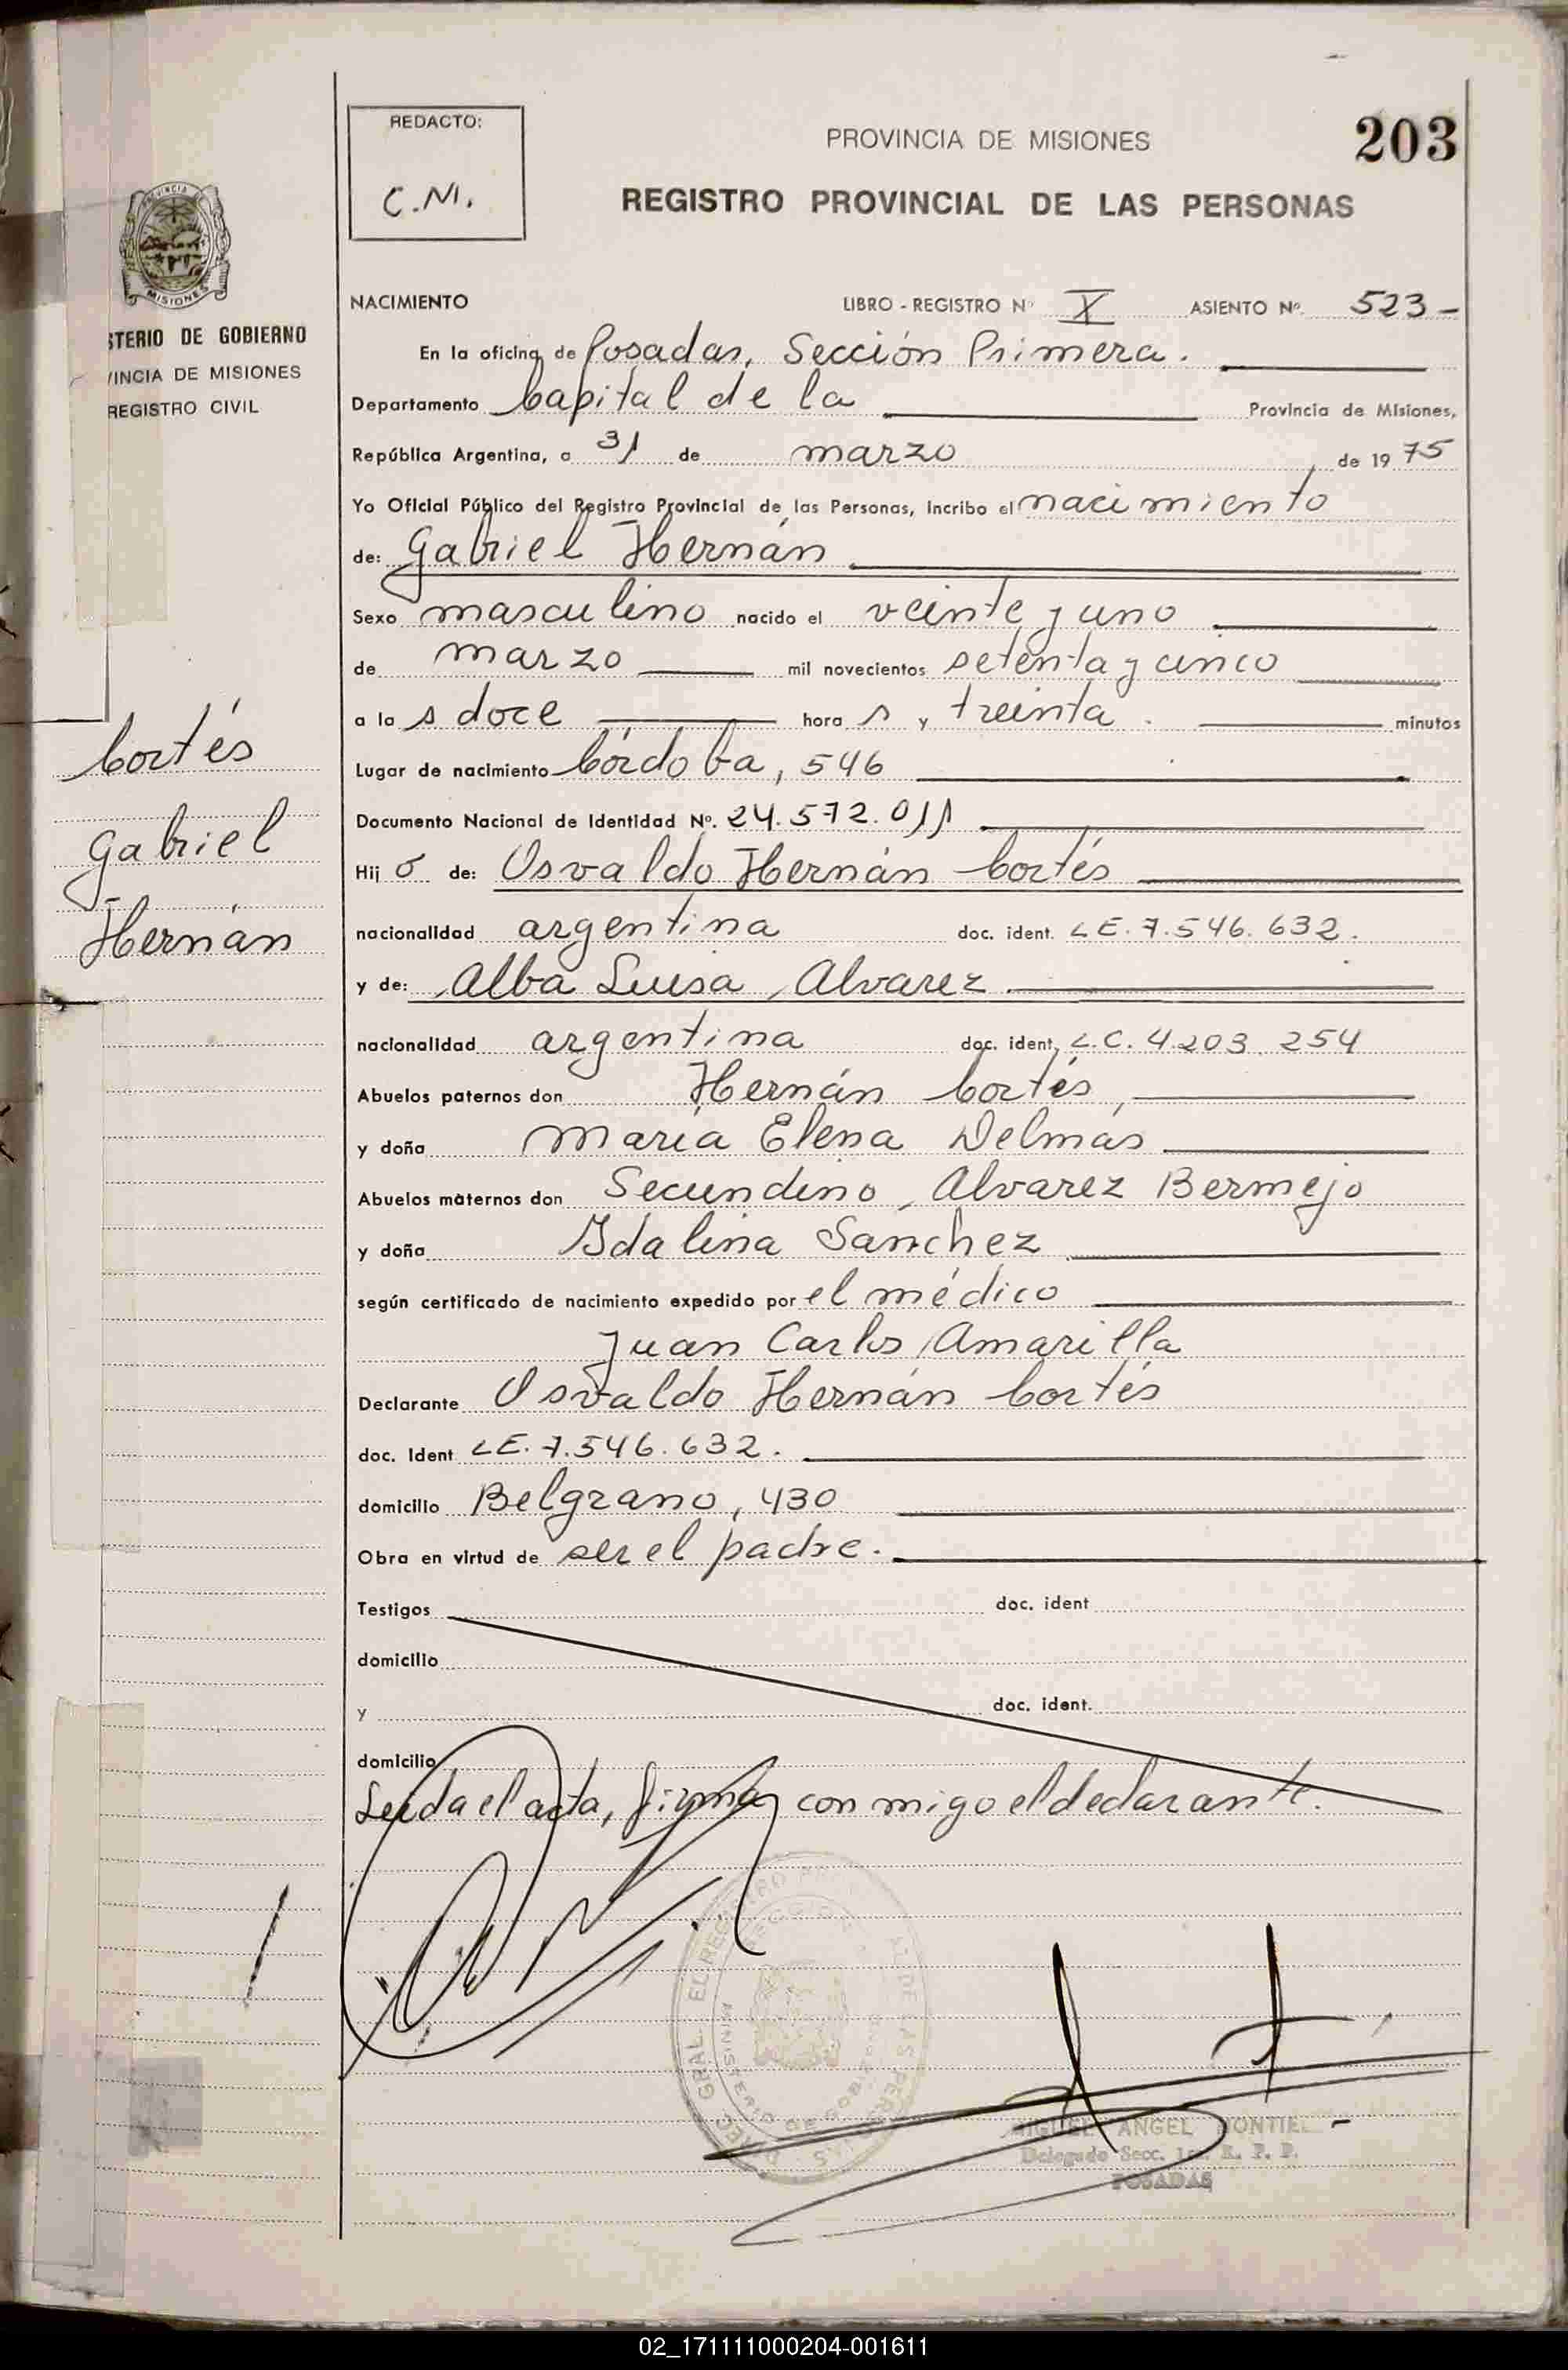 REDACTO:
C.M.
PROVINCIA DE MISIONES
203
REGISTRO PROVINCIAL DE LAS PERSONAS
MISIONES
STERIO DE GOBIERNO
VINCIA DE MISIONES
REGISTRO CIVIL
NACIMIENTO LIBRO - REGISTRO Nº X ASIENTO Nº. 523-
En la oficina de Posadas, Sección Primera.
Departamento Capital de la Provincia de Misiones,
República Argentina, a 31 de marzo de 1975
Yo Oficial Público del Registro Provincial de las Personas, Incribo el nacimiento
de: Gabriel Hernán
Sexo masculino nacido el veinte y uno
de marzo mil novecientos setenta y cinco
a la s doce hora s y treinta. minutos
Cortés
Gabriel
Hernán
Lugar de nacimiento Córdoba, 546
Documento Nacional de Identidad Nº. 24.572.011
Hij o de: Osvaldo Hernán Cortés
nacionalidad argentina doc. ident. LE. 7.546.632.
y de: Alba Luisa Alvarez
nacionalidad argentina doc. ident. L.C. 4.203.254
Abuelos paternos don Hernán Cortés,
y doña María Elena Delmás
Abuelos maternos don Secundino Alvarez Bermejo
y doña Idalina Sánchez
según certificado de nacimiento expedido por el médico
Juan Carlos Amarilla
Declarante Osvaldo Hernán Cortés
doc. Ident LE. 7.546.632.
domicilio Belgrano, 430
Obra en virtud de ser el padre.
Testigos doc. ident
domicilio
y doc. ident.
domicilio
Leida el acta, firma con migo el declarante.
MIGUEL ANGEL MONTIEL
Delegado Secc. 1ra. R. P. P.
POSADAS
02_171111000204-001611